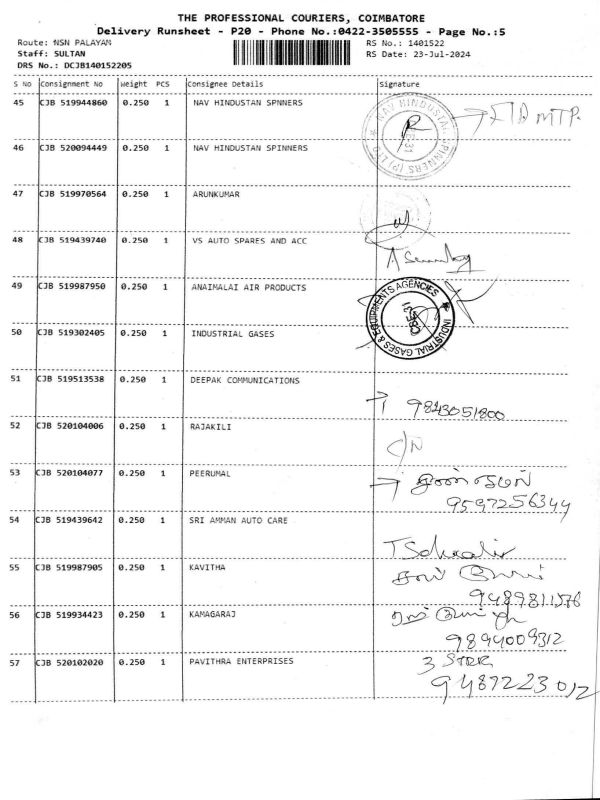 THE PROFESSIONAL COURIERS, COIMBATORE
Delivery Runsheet - P20 - Phone No.:0422-3505555 - Page No.:5
Route: NSN PALAYAM RS No.: 1401522
Staff: SULTAN RS Date: 23-Jul-2024
DRS No.: DCJB140152205
S No Consignment No Weight PCS Consignee Details Signature
45 CJB 519944860 0.250 1 NAV HINDUSTAN SPNNERS
NAV HINDUSTAN SPINNERS (P) LTD
MTP.
46 CJB 520094449 0.250 1 NAV HINDUSTAN SPINNERS
47 CJB 519970564 0.250 1 ARUNKUMAR
48 CJB 519439740 0.250 1 VS AUTO SPARES AND ACC
49 CJB 519987950 0.250 1 ANAIMALAI AIR PRODUCTS
INDUSTRIAL GASES & EQUIPMENTS AGENCIES
CBE-31
50 CJB 519302405 0.250 1 INDUSTRIAL GASES
51 CJB 519513538 0.250 1 DEEPAK COMMUNICATIONS
9843051800
52 CJB 520104006 0.250 1 RAJAKILI
53 CJB 520104077 0.250 1 PEERUMAL
9597256344
54 CJB 519439642 0.250 1 SRI AMMAN AUTO CARE
55 CJB 519987905 0.250 1 KAVITHA
9489811576
56 CJB 519934423 0.250 1 KAMAGARAJ
9894009312
57 CJB 520102020 0.250 1 PAVITHRA ENTERPRISES
9487223012